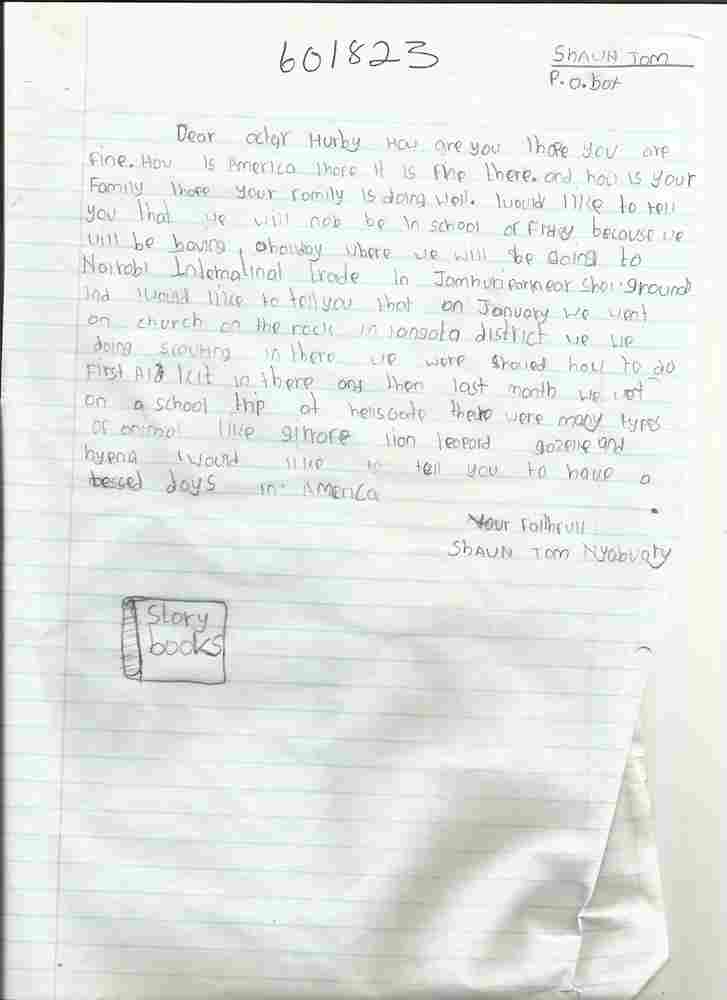 601823
SHAUN TOM
P.o.box
Dear octar Hurby How are you I hope you are
Fine. How is America I hope it is fine there. and how is your
Family I hope your family is doing well. I would like to tell
you that we will not be in school of Friday because we
will be having a holiday where we will be going to
Nairobi International Trade in Jamhuri near show ground
and I would like to tell you that on January we went
on church on the rock in langata district we we
doing scouting in there we were showed how to do
First Aid kit in there and then last month we wot
on a school trip at hellsgate there were many types
of animal like girrafe lion leopard gazelle and
hyena I would like to tell you to have a
blessed days in America
Your Faithfull
SHAUN TOM Nyabuaty
Story
books